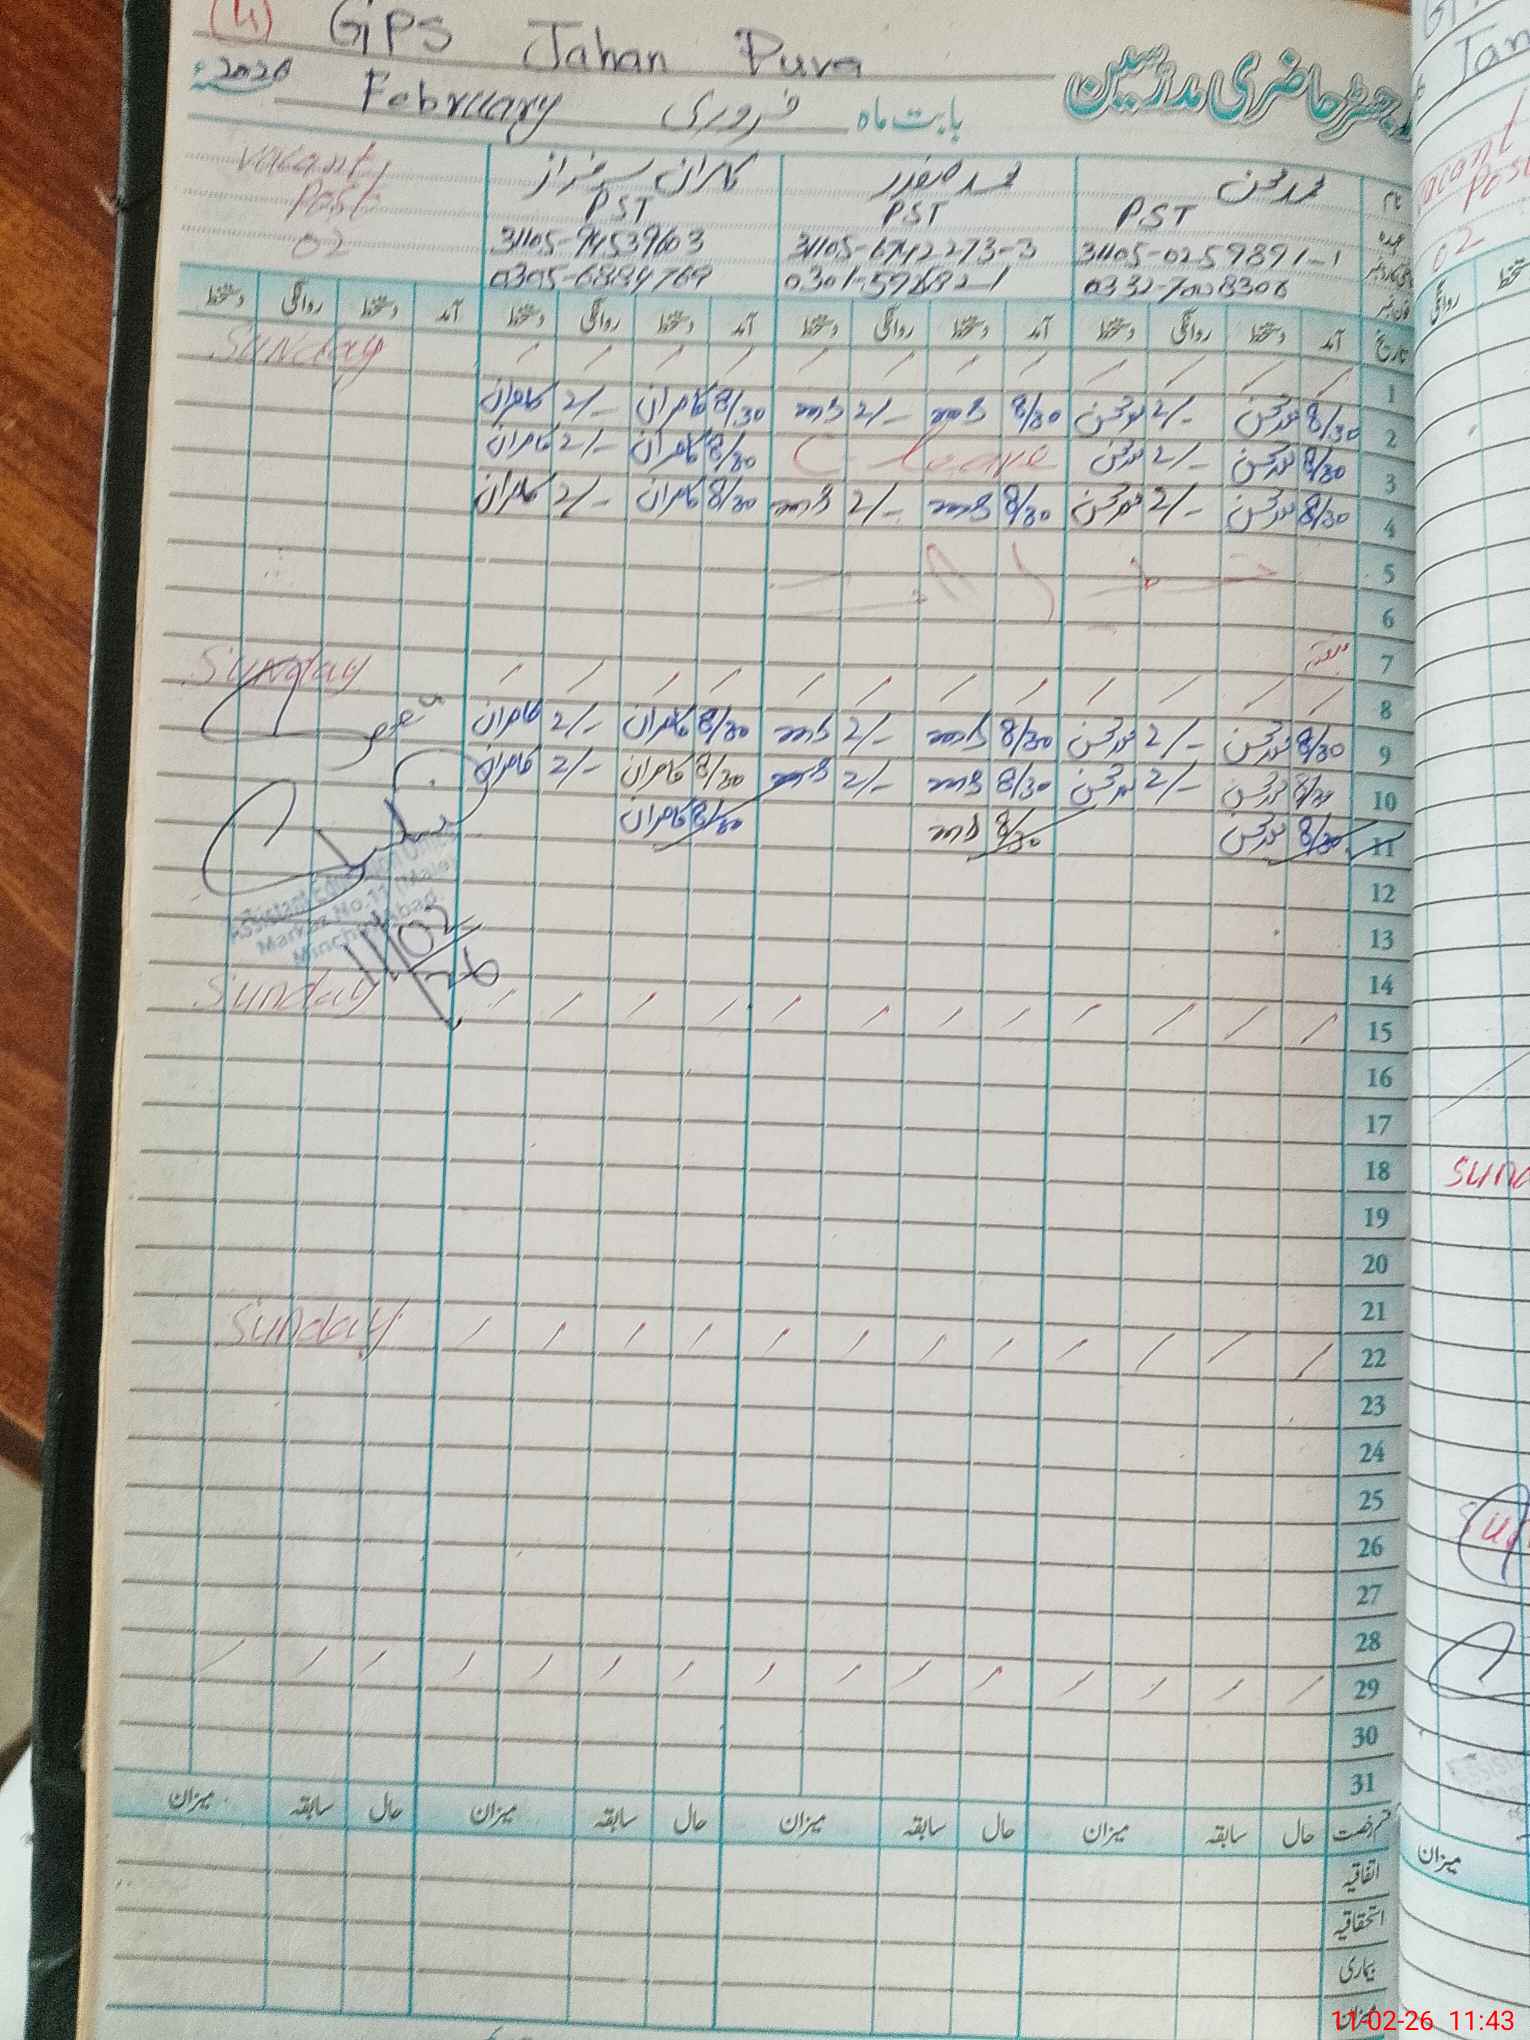 (4) GPS Jahan Pura
رجسٹر حاضری مدرسین
بابت ماہ فروری February 2026ء
نام محمد محسن محمد صفدر کامران سرفراز Vacant
عہدہ PST PST PST Post
31105-0259891-1 31105-6742273-3 31105-94539603 02
فون نمبر 0332-7008306 0301-5976821 0305-6884769
تاریخ آمد دستخط روانگی دستخط آمد دستخط روانگی دستخط آمد دستخط روانگی دستخط آمد دستخط روانگی دستخط
1 / / / / / / / / / / / / Sunday
2 8/30 محمد محسن 2/- محمد محسن 8/30 2/- 8/30 کامران 2/- کامران
3 8/30 محمد محسن 2/- محمد محسن C-leave 8/30 کامران 2/- کامران
4 8/30 محمد محسن 2/- محمد محسن 8/30 2/- 8/30 کامران 2/- کامران
5
6
7 ہفتہ
8 / / / / / / / / / / / / Sunday
9 8/30 محمد محسن 2/- محمد محسن 8/30 2/- 8/30 کامران 2/- کامران
10 8/30 محمد محسن 2/- محمد محسن 8/30 2/- 8/30 کامران 2/- کامران
11 8/30 محمد محسن 8/30 8/30 کامران
12
Assistant Education Officer
Markaz No.11 (Male)
Minchinabad
11/02/26
13
14
15 / / / / / / / / / / / / Sunday
16
17
18
19
20
21
22 / / / / / / / / / / / / Sunday
23
24
25
26
27
28
29 / / / / / / / / / / / / / / /
30
31
قسم رخصت حال سابقہ میزان حال سابقہ میزان حال سابقہ میزان حال سابقہ میزان
اتفاقیہ
استحقاقیہ
بیماری
میزان
Vacant
Post
02
دستخط روانگی
Sund
میزان
11-02-26 11:43